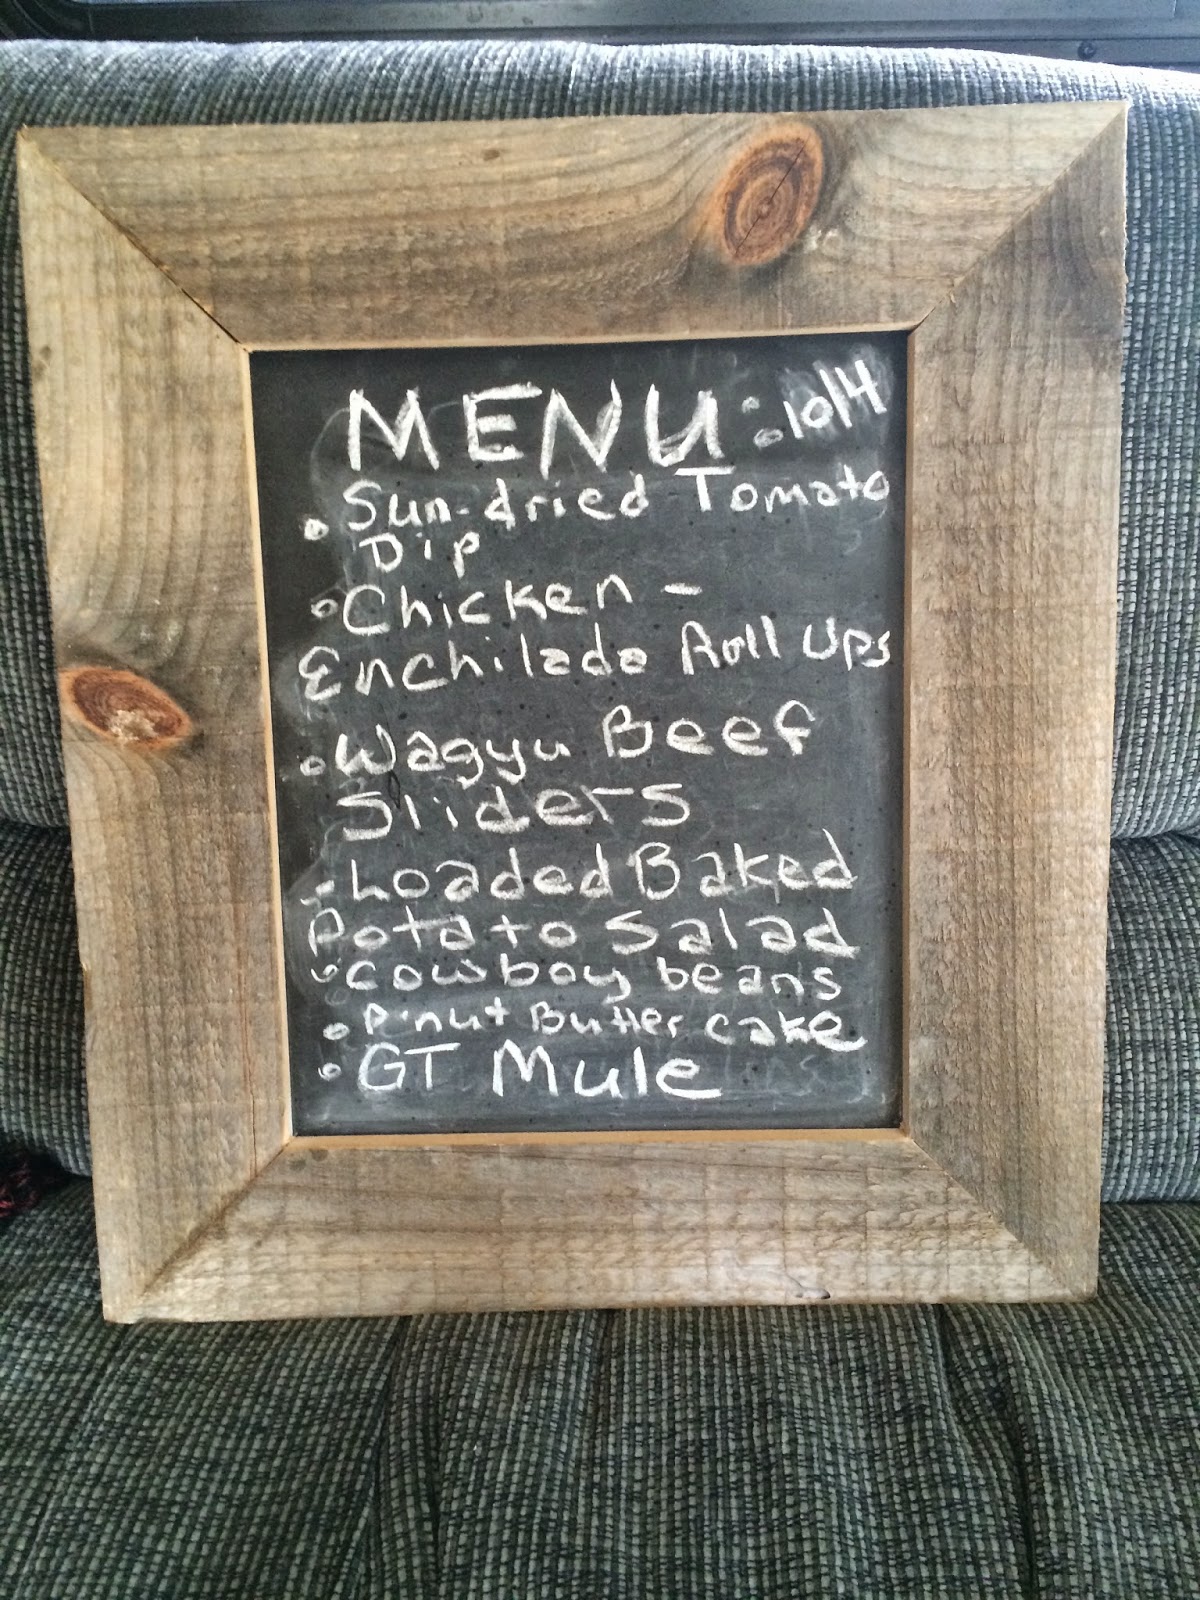 MENU: 10/4
• Sun-dried Tomato
Dip
• Chicken -
Enchilada Roll Ups
• Wagyu Beef
Sliders
- Loaded Baked
Potato Salad
• cowboy beans
• P'nut Butter cake
• GT Mule